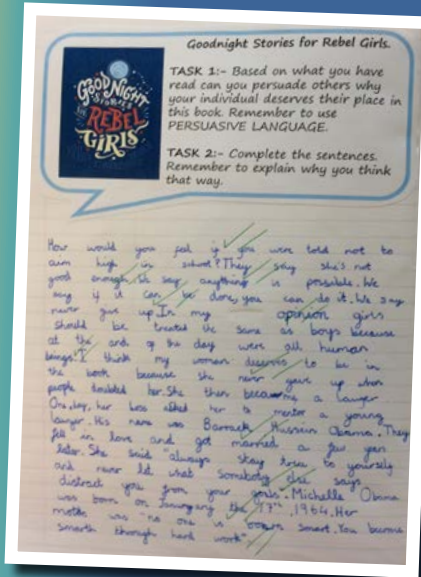 Goodnight Stories for Rebel Girls.
TASK 1:- Based on what you have
read can you persuade others why
your individual deserves their place in
this book. Remember to use
PERSUASIVE LANGUAGE.
TASK 2:- Complete the sentences.
Remember to explain why you think
that way.
GOOD NIGHT
STORIES
FOR
REBEL
GIRLS
How would you feel if you were told not to
aim high in school? They say she's not
good enough. We say anything is possible. We
say if it can be done, you can do it. We say
never give up. In my opinion girls
should be treated the same as boys because
at the ends of the day were all human
beings. I think my woman deserves to be in
the book because she never gave up when
people doubted her. She then became a lawyer
One day, her boss asked her to mentor a young
lawyer. His name was Barrack Hussein Obama. They
fell in love and got married a few years
later. She said "always stay true to yourself
and never let what somebody else says
distract you from your goals". Michelle Obama
was born on the 17th, 1964. Her
motto was "no one is born smart. You become
smart through hard work"